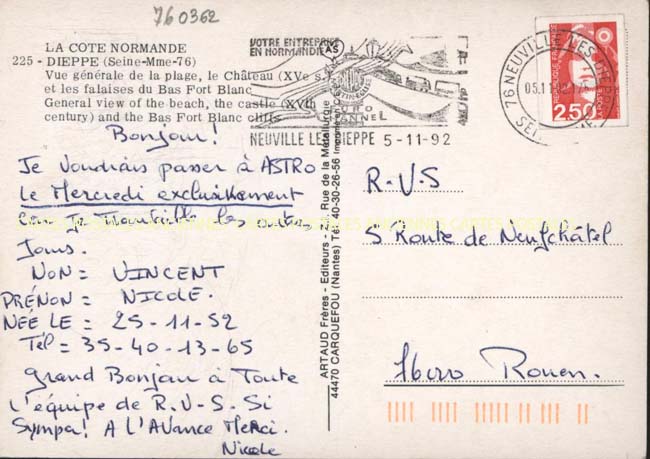 760362
LA COTE NORMANDE
225 - DIEPPE (Seine-Mme-76)
Vue générale de la plage, le Château (XVe s.)
et les falaises du Bas Fort Blanc
General view of the beach, the castle (XVth
century) and the Bas Fort Blanc cliffs
Bonjour!
Je Voudrais passer à ASTRO
le Mercredi exclusivement
car Je Travaille les autres
Jours.
NON = VINCENT
PRÉNON = NICOLE.
NÉE LE = 25-11-52
Tél = 35-40-13-65
grand Bonjour à Toute
L'équipe de R.V.S. Si
Sympa! A L'Avance Merci.
Nicole
ARTAUD Frères - Editeurs - Rue de la Métallurgie
44470 CARQUEFOU (Nantes) Tél. 40-30-26-56
VOTRE ENTREPRISE
EN NORMANDIE
NEUVILLE LES DIEPPE 5-11-92
76 NEUVILLE LES DIEPPE
2,50
R.V.S
5 Route de Neufchâtel
76000 Rouen.